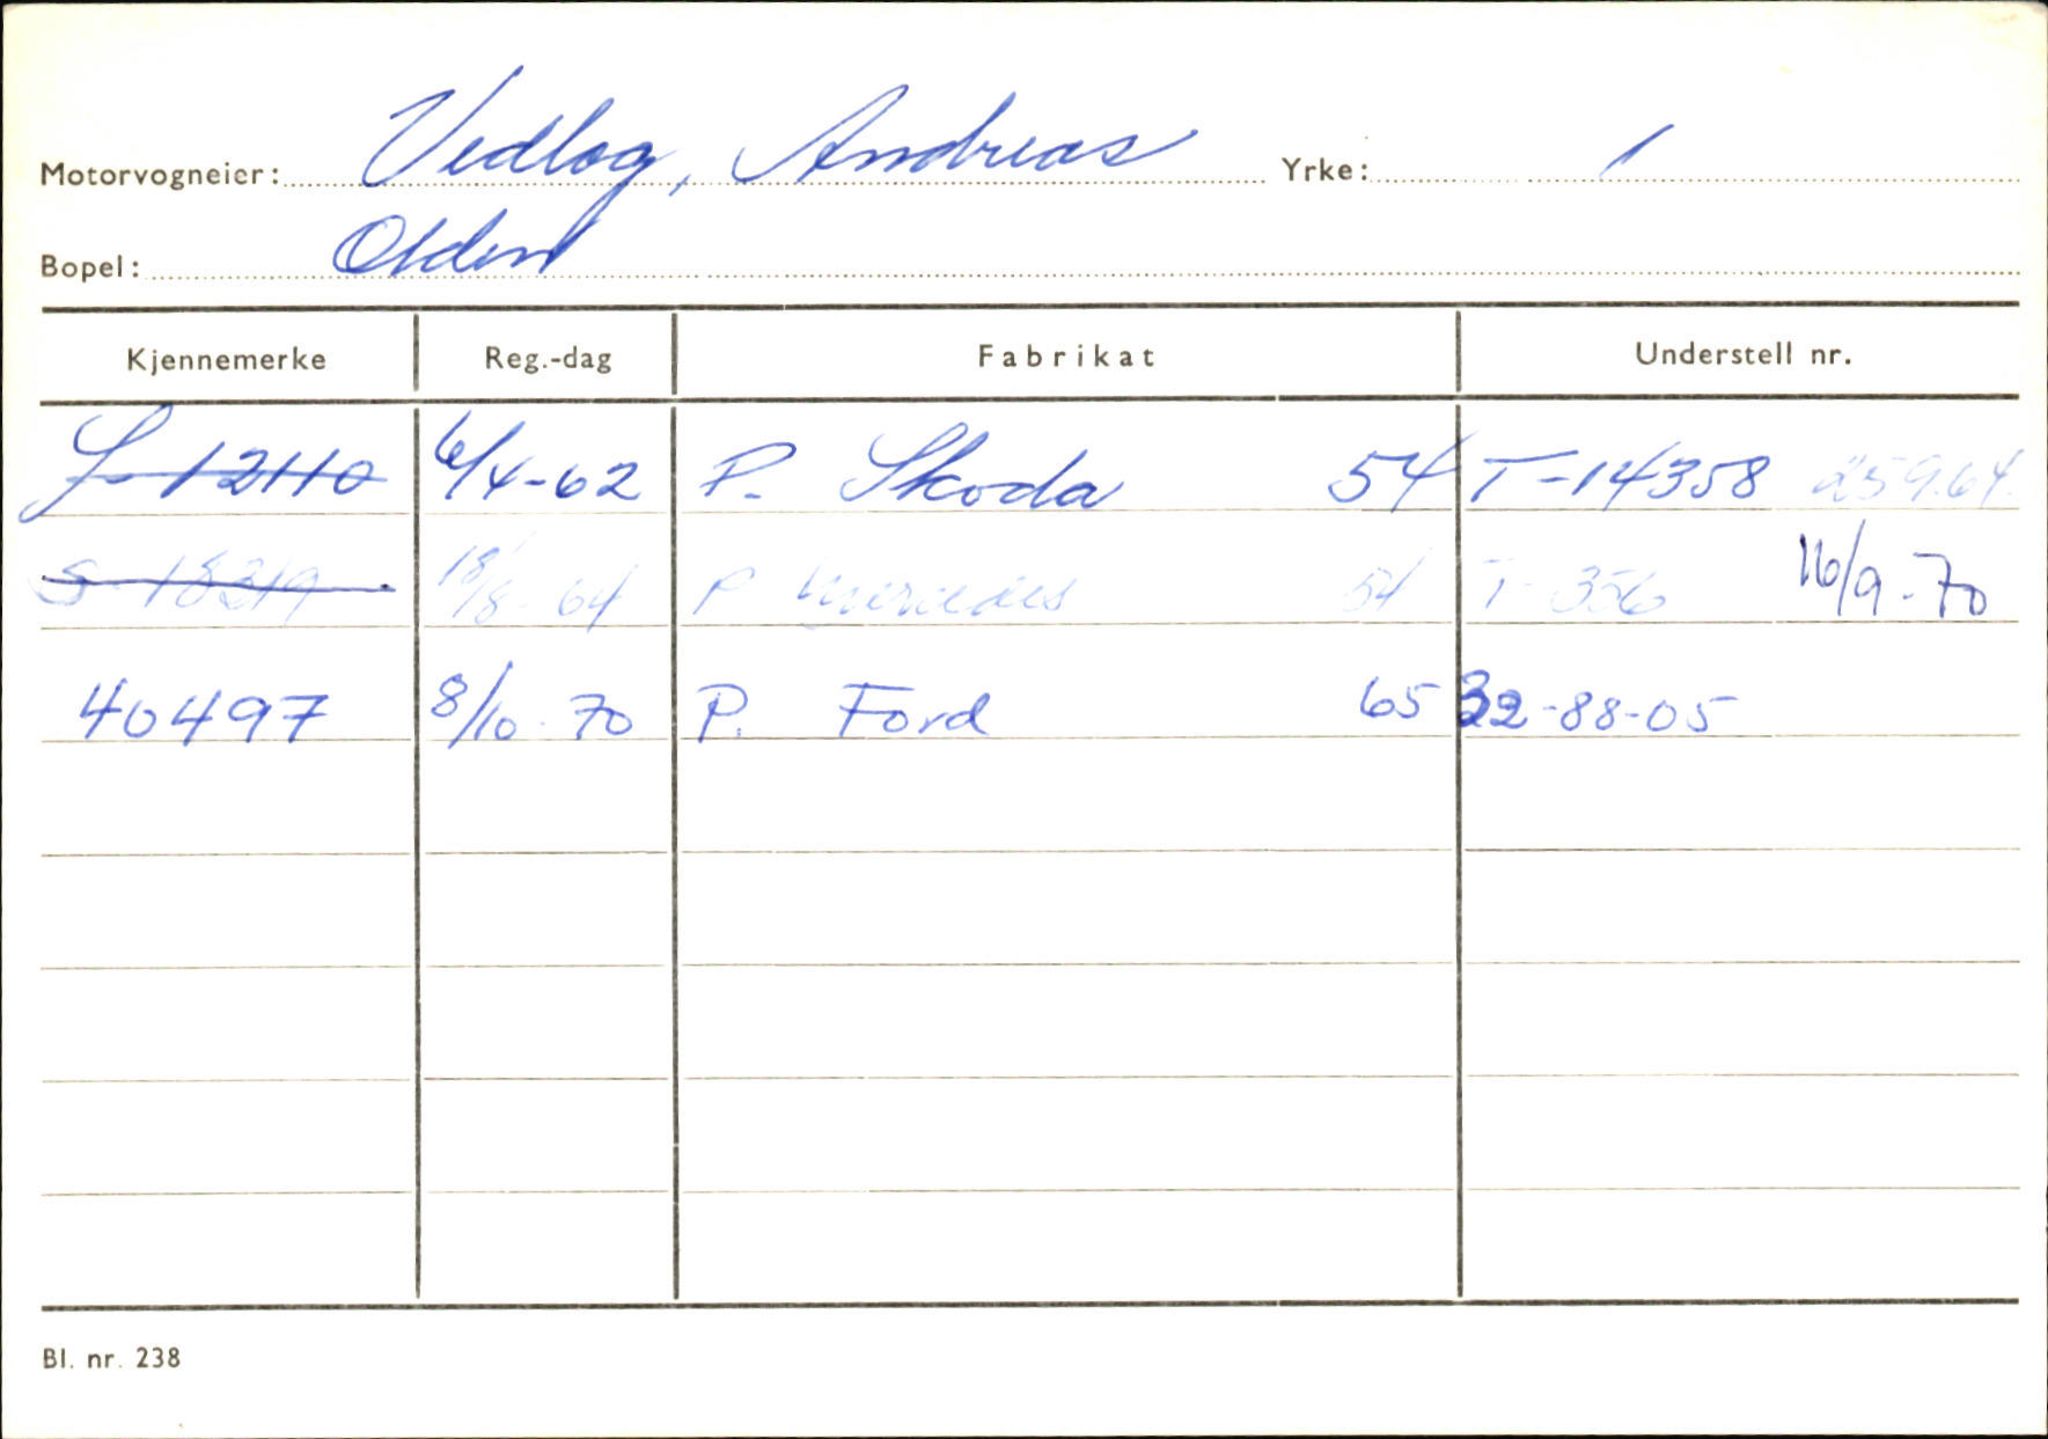 Motorvogneier: Vedlog, Andreas Yrke: /
Bopel: Olden
Kjennemerke Reg.-dag Fabrikat Understell nr.
S-12110 6/4-62 P. Skoda 54 T-14358 25.9.64.
S-18219 18/8-64 P Mercedes 54 T-356 16/9-70
40497 8/10-70 P. Ford 65 32-88-05
Bl. nr. 238